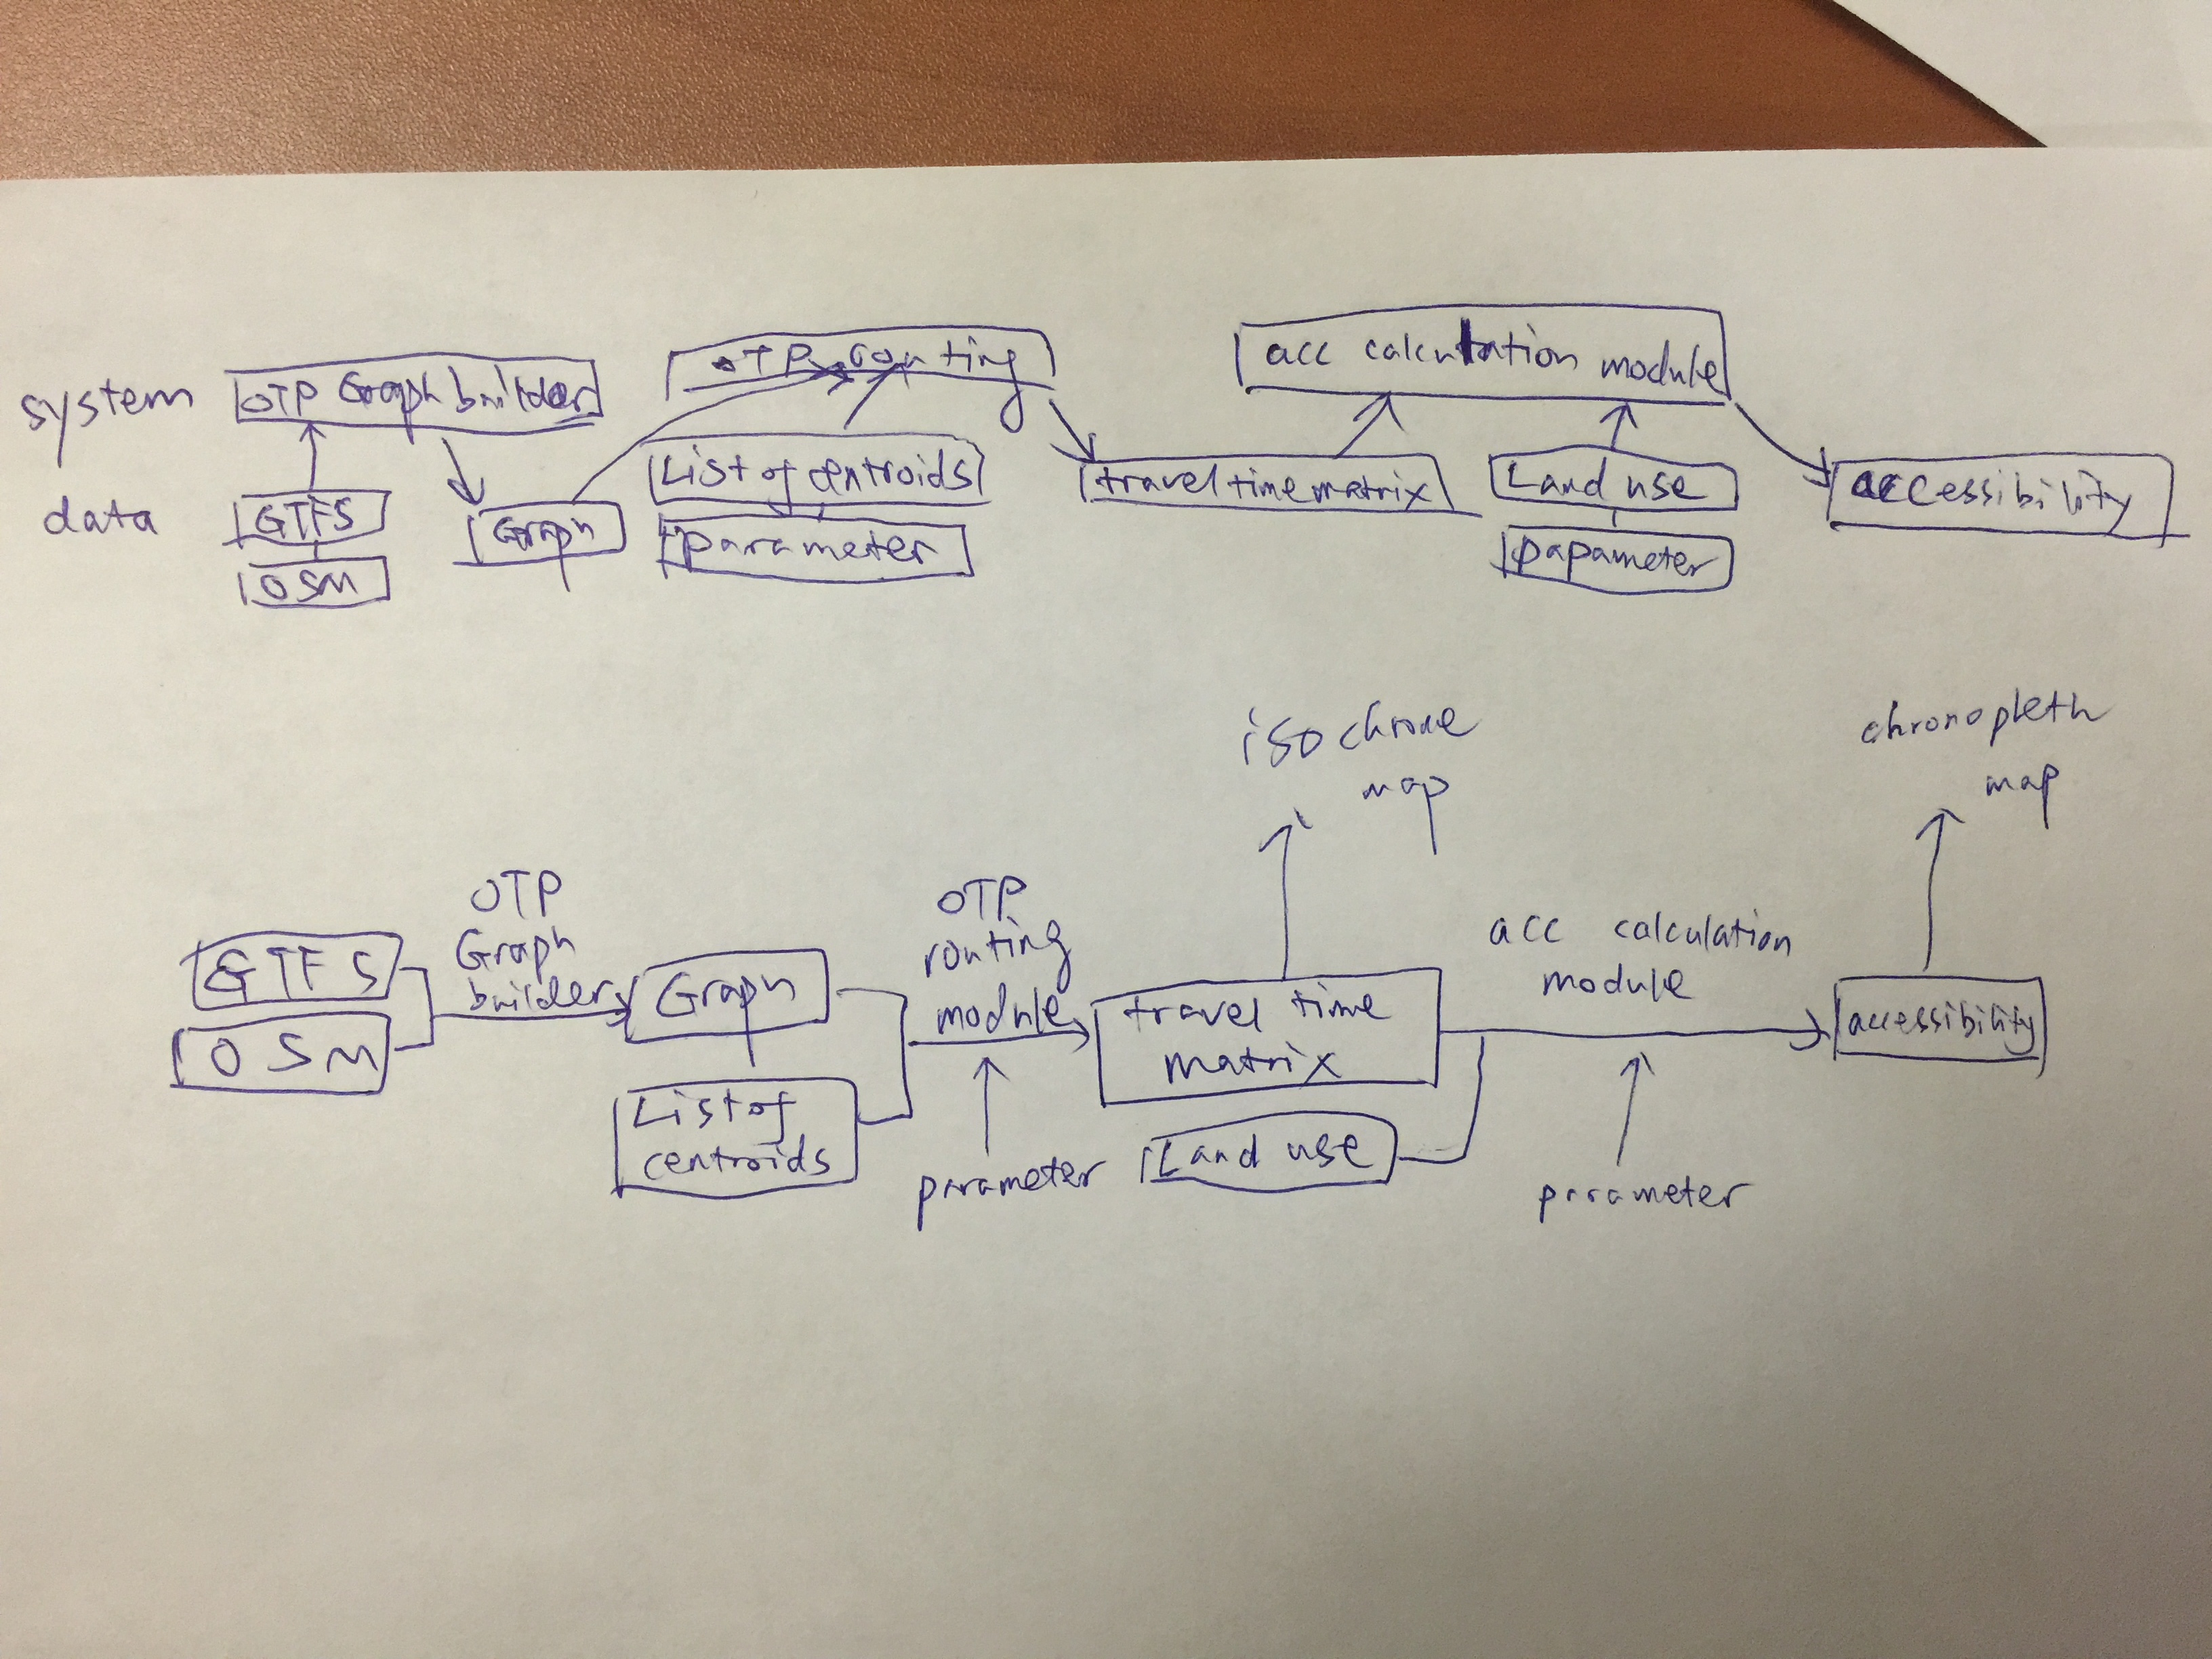 system
OTP Graph builder
OTP routing
acc calculation module
data
GTFS
OSM
Graph
List of centroids
parameter
travel time matrix
Land use
papameter
accessibility
isochrone
map
chronopleth
map
GTFS
OSM
OTP
Graph
builder
Graph
List of
centroids
OTP
routing
module
parameter
travel time
matrix
Land use
acc calculation
module
parameter
accessibility